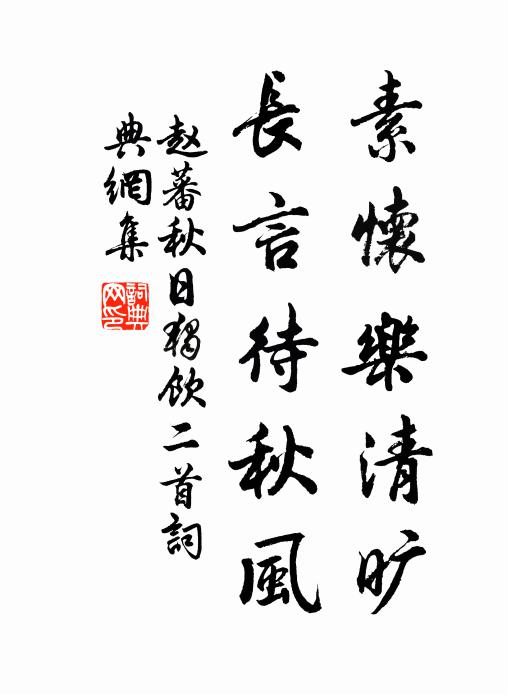 素懷樂清旷
長言待秋風
赵蕃秋日獨飲二首詞
典網集
詞典網印